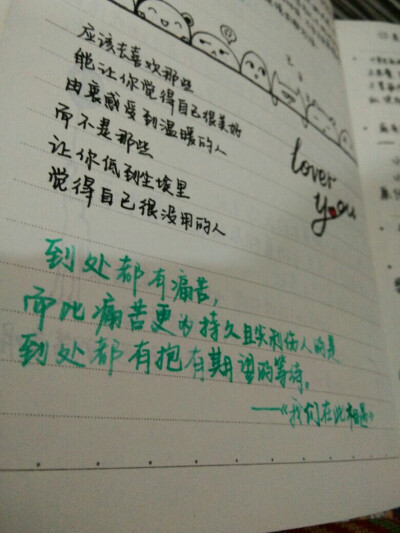 应该去喜欢那些
能让你觉得自己很美好
由衷感受到温暖的人
而不是那些
让你低到尘埃里
觉得自己很没用的人
lover
you
到处都有痛苦，
而比痛苦更为持久且尖利伤人的是
到处都有抱有期望的等待。
——《我们在此相遇》